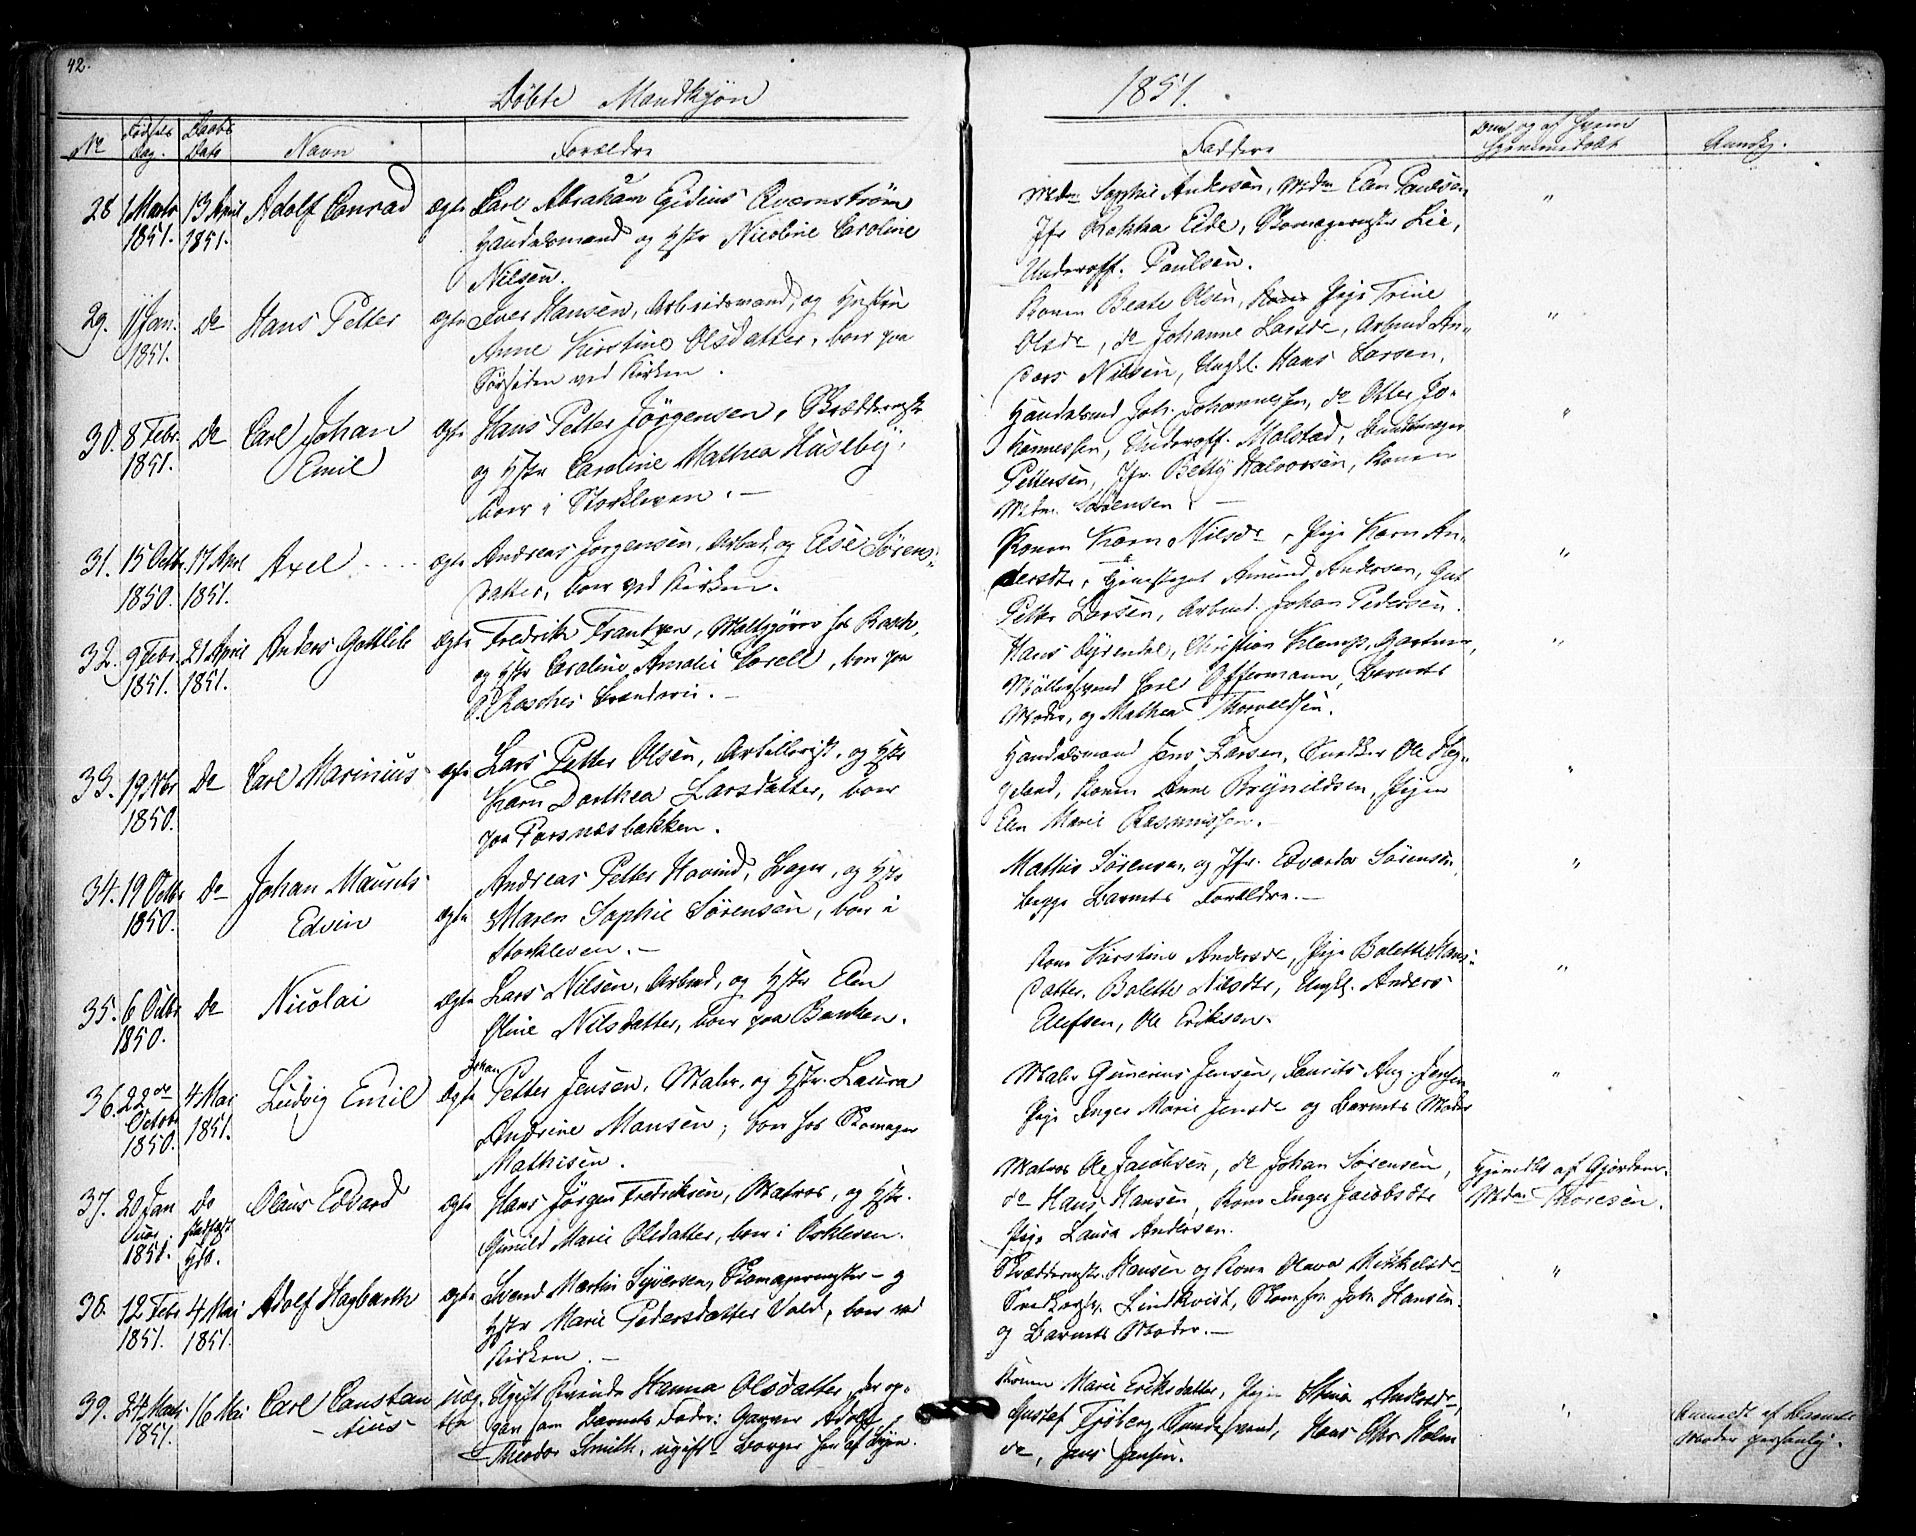 42.
Døbte Mandkjøn
1851.
No Fødsels Dag. Daabs Dato Navn Forældre Faddere Anmkg.
28 1 Marts 1851. 13 April 1851. Adolf Conrad ægte Carl Abraham Egidius Qvarnstrøm
Handelsmand og Hstr Nicoline Caroline
Nilsen.
Mdm Sophie Andersen, Mdm Elen Paulsen
Jfr Eide, Skomagermester Lie,
Underoff. Paulsen.
29. 11 Jan. 1851. Do Hans Petter ægte Iver Hansen, Arbeidsmand, og Hustru
Anne Kirstine Olsdatter, boer paa
Sørsiden ved Kirken.
Konen Beate Olsen, Pige Trine
Olsdr, do Johanne Larsdr, Arbmd An-
ders Nilsen, Ungkl. Hans Larsen.
30. 8 Febr. 1851. Do Carl Johan Emil ægte Hans Petter Jørgensen, Skræddermstr
og Hstr Caroline Mathea Huseby,
boer i Storkleven. —
Handelsmd Joh. Johannessen, do Otter Jo-
hannessen, Underoff. Molstad, Bundtmager
Pettersen, Jfr. Betty Halvorsen, Konen
Mdm. Sørensen. —
31. 15 Octbr 1850. 17 April 1851. Axel ægte Andreas Jørgensen, Arbmd, og Else Sørens-
datter, boer ved Kirken.
Konen Karn Nilsdr, Pige Karn An-
dersdtr, Amund Andersen, Gut
Petter Larsen, Arbmd. Johan Pedersen.
32. 9 Febr. 1851. 21 April 1851. Anders Gottlieb ægte Fredrik Frantzen, Maltgjører hos Rasch,
og Hstr Caroline Amalie Corell, boer paa
P. Rasches Brænderi. —
Hans Dyrendal, Christian Klemp, Gartner,
Møllersvend Carl Offermann, Barnets
Moder, og Mathea Thorvaldsen.
33. 19 Nbr 1850. Do Carl Marinius ægte Lars Petter Olsen, Artillerist, og Hstr
Karn Dorthea Larsdatter, boer
paa Parsnæsbakken.
Handelsmand Jens Larsen, Snedker Ole Heg-
geland, Konen Anne Brynildsen, Pigen
Elen Marie Rasmussen. —
34. 19 Octbr 1850. Do Johan Maurits Edvin ægte Andreas Petter Hovind, Bager, og Hstr
Maren Sophie Sørensen, boer i
Storkleven. —
Mathis Sørensen og Jfr. Edvarda Sørensen,
begge Barnets Forældre. —
35. 6 Octbr 1850. Do Nicolai ægte Lars Nilsen, Arbmd, og Hstr Elen
Oline Nilsdatter, boer paa Banken.
Kone Kirstine Andersdr, Pige Bolette Hans-
datter, Bolette Nilsdtr, Ungkl. Anders
Elefsen, Ole Eriksen.
36. 22de October 1850. 4 Mai 1851. Ludvig Emil ægte Johan Petter Jensen, Maler, og Hstr. Laura
Andrine Monsen, boer hos Skomager
Mathisen.
Maler Gunerius Jensen, Laurits Aug. Jensen
Pige Inger Marie Jensdr og Barnets Moder
37. 20 Januar 1851. Do Olaus Edvard ægte Hans Jørgen Fredriksen, Matros, og Hstr.
Gunild Marie Olsdatter, boer i Oskleven.
Matros Ole Jacobsen, do Johan Sørensen,
do Hans Hansen, Kone Inger Jacobsdtr
Pige Laura Andersen.
Hjemdbt af Gjordem.
Mdm Thoresen.
38. 12 Febr 1851. 4 Mai 1851. Adolf Hagbarth ægte Svend Martin Syversen, Skomagermester og
Hstr Marie Pedersdatter Vold, boer ved
Kirken. —
Skræddermstr. Hansen og Kone Olava Mikkelsdr
Lindkvist, Joh. Hansen
og Barnets Moder. —
39. 24 Marts 1851. 16 Mai Carl Constantius uægte Ugift Kvinde Hanna Olsdatter, der op-
gav som Barnets Fader: Garver Adolf
Theodor Smith, ugift Borger her af Byen.
Konen Marie Eriksdatter, Pige Stina Andersdr,
Gustaf Frøberg, Hans Chr Holm
do, Jens Jensen.
Anmeldt af Barnets
Moder personlig.